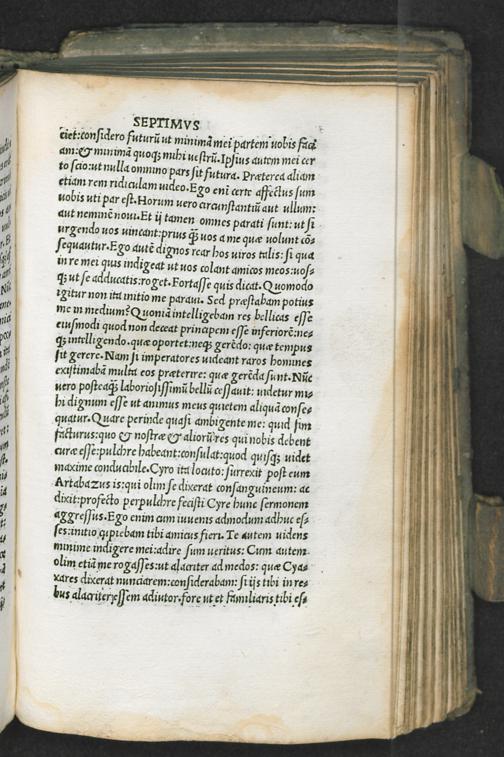 SEPTIMVS
ciet:considero futurū ut minimā mei partem uobis faci
am:& minimā quoqꝫ mihi uestrū.Ipsius autem mei cer
to scio:ut nulla omnino pars sit futura. Præterea aliam
etiam rem ridiculam uideo.Ego eni certe affectus sum
uobis uti par est.Horum uero circunstantiū aut ullum:
aut neminē noui.Et ij tamen omnes parati sunt:ut si
urgendo uos uincant:prius qꝫ uos a me quæ uolunt cō-
sequantur.Ego autē dignos rear hos uiros talis:si qua
in re mei quis indigeat ut uos colant amicos meos:uos-
qꝫ ut se adducatis:roget.Fortasse quis dicat.Quomodo
igitur non ita initio me paraui. Sed præstabam potius
me in medium?Quoniā intelligebam res bellicas esse
eiusmodi quod non deceat principem esse inferiorē:ne-
qꝫ intelligendo.quæ oportet:neqꝫ gerēdo: quæ tempus
sit gerere.Nam ii imperatores uideant raros homines
existimabam multa eos præterire: quæ gerēda sunt.Nūc
uero posteaqꝫ laboriosissimū bellū cessauit: uidetur mi-
hi dignum esse ut animus meus quietem aliquā conse-
quatur.Quare perinde quasi ambigente me: quid sim
facturus:quo & nostræ & aliorū res qui nobis debent
curæ esse:pulchre habeant:consulat:quod quisqꝫ uidet
maxime conducibile.Cyro ita locuto:surrexit post eum
Artabazus is:qui olim se dixerat consanguineum: ac
dixit:profecto perpulchre fecisti Cyre hunc sermonem
aggressus.Ego enim cum iuuenis admodum adhuc es-
ses:initio cupiebam tibi amicus fieri. Te autem uidens
minime indigere mei:adire sum ueritus: Cum autem
olim etiā me rogasses:ut alacriter ad medos: quæ Cya-
xares dixerat nunciarem:considerabam: si ijs tibi in re-
bus alacriter essem adiutor.fore ut et familiaris tibi es-